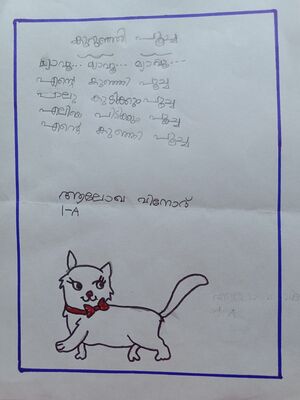 കുറുഞ്ഞി പൂച്ച
മ്യാവൂ... മ്യാവൂ... മ്യാവൂ...
എന്റെ കുഞ്ഞി പൂച്ച
പാലു കുടിക്കും പൂച്ച
എലിയെ പിടിക്കും പൂച്ച
എന്റെ കുഞ്ഞി പൂച്ച
ആലോഖ വിനോദ്
1-A